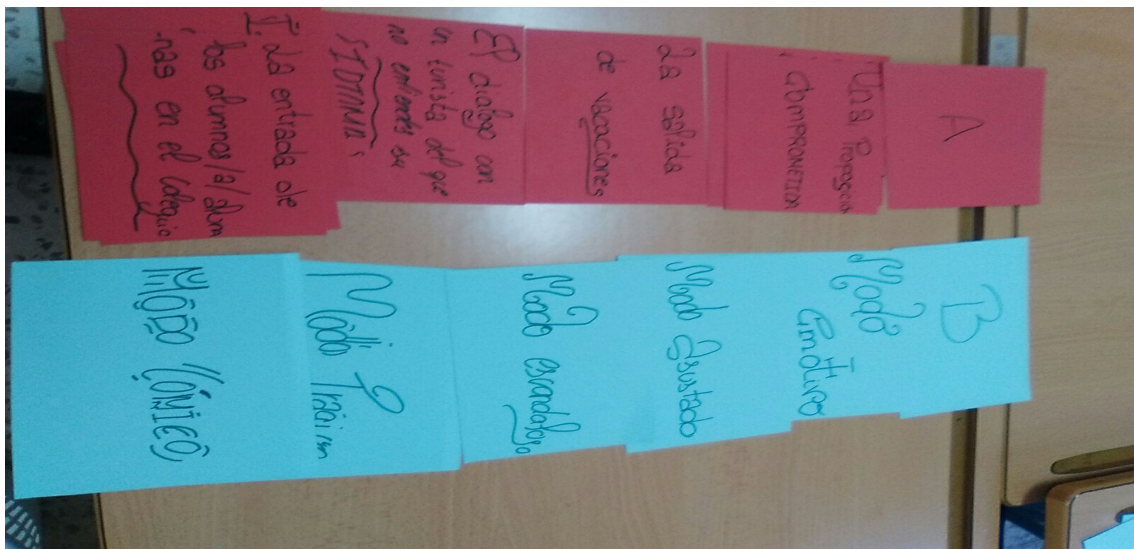 A
Una Proposición
COMPROMETIDA
La salida
de vacaciones
El dialogo con
un turista del que
no entiendes su
IDIOMA
La entrada de
los alumnos/a/alum
nas en el colegio
B
Modo
Emotivo
Modo Asustado
Modo escandaloso
Modo
MODO CÓNICO